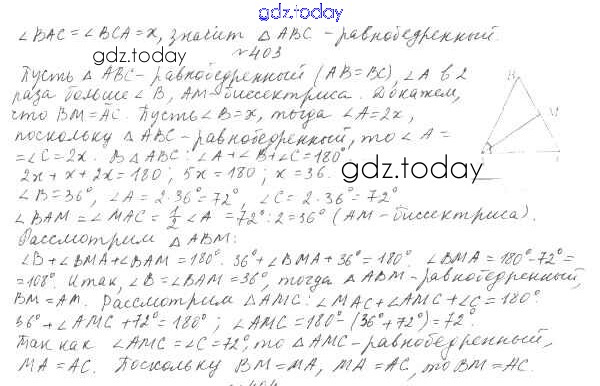 gdz.today
∠BAC = ∠BCA = x, значит △ABC - равнобедренный.
gdz.today
№403
Пусть △ABC - равнобедренный (AB = BC), ∠A в 2
раза больше ∠B, AM - биссектриса. Докажем,
что BM = AC. Пусть ∠B = x, тогда ∠A = 2x,
поскольку △ABC - равнобедренный, то ∠A =
= ∠C = 2x. В △ABC: ∠A + ∠B + ∠C = 180°
gdz.today
2x + x + 2x = 180; 5x = 180; x = 36.
∠B = 36°, ∠A = 2·36° = 72°, ∠C = 2·36° = 72°
gdz.today
∠BAM = ∠MAC = 1/2 ∠A = 72°:2 = 36° (AM - биссектриса).
Рассмотрим △ABM:
∠B + ∠BMA + ∠BAM = 180°. 36° + ∠BMA + 36° = 180°. ∠BMA = 180° - 72° =
= 108°. Итак, ∠B = ∠BAM = 36°, тогда △ABM - равнобедренный,
BM = AM. Рассмотрим △AMC: ∠MAC + ∠AMC + ∠C = 180°.
36° + ∠AMC + 72° = 180°; ∠AMC = 180° - (36° + 72°) = 72°.
Так как ∠AMC = ∠C = 72°, то △AMC - равнобедренный,
MA = AC. Поскольку BM = MA, MA = AC, то BM = AC.
B
M